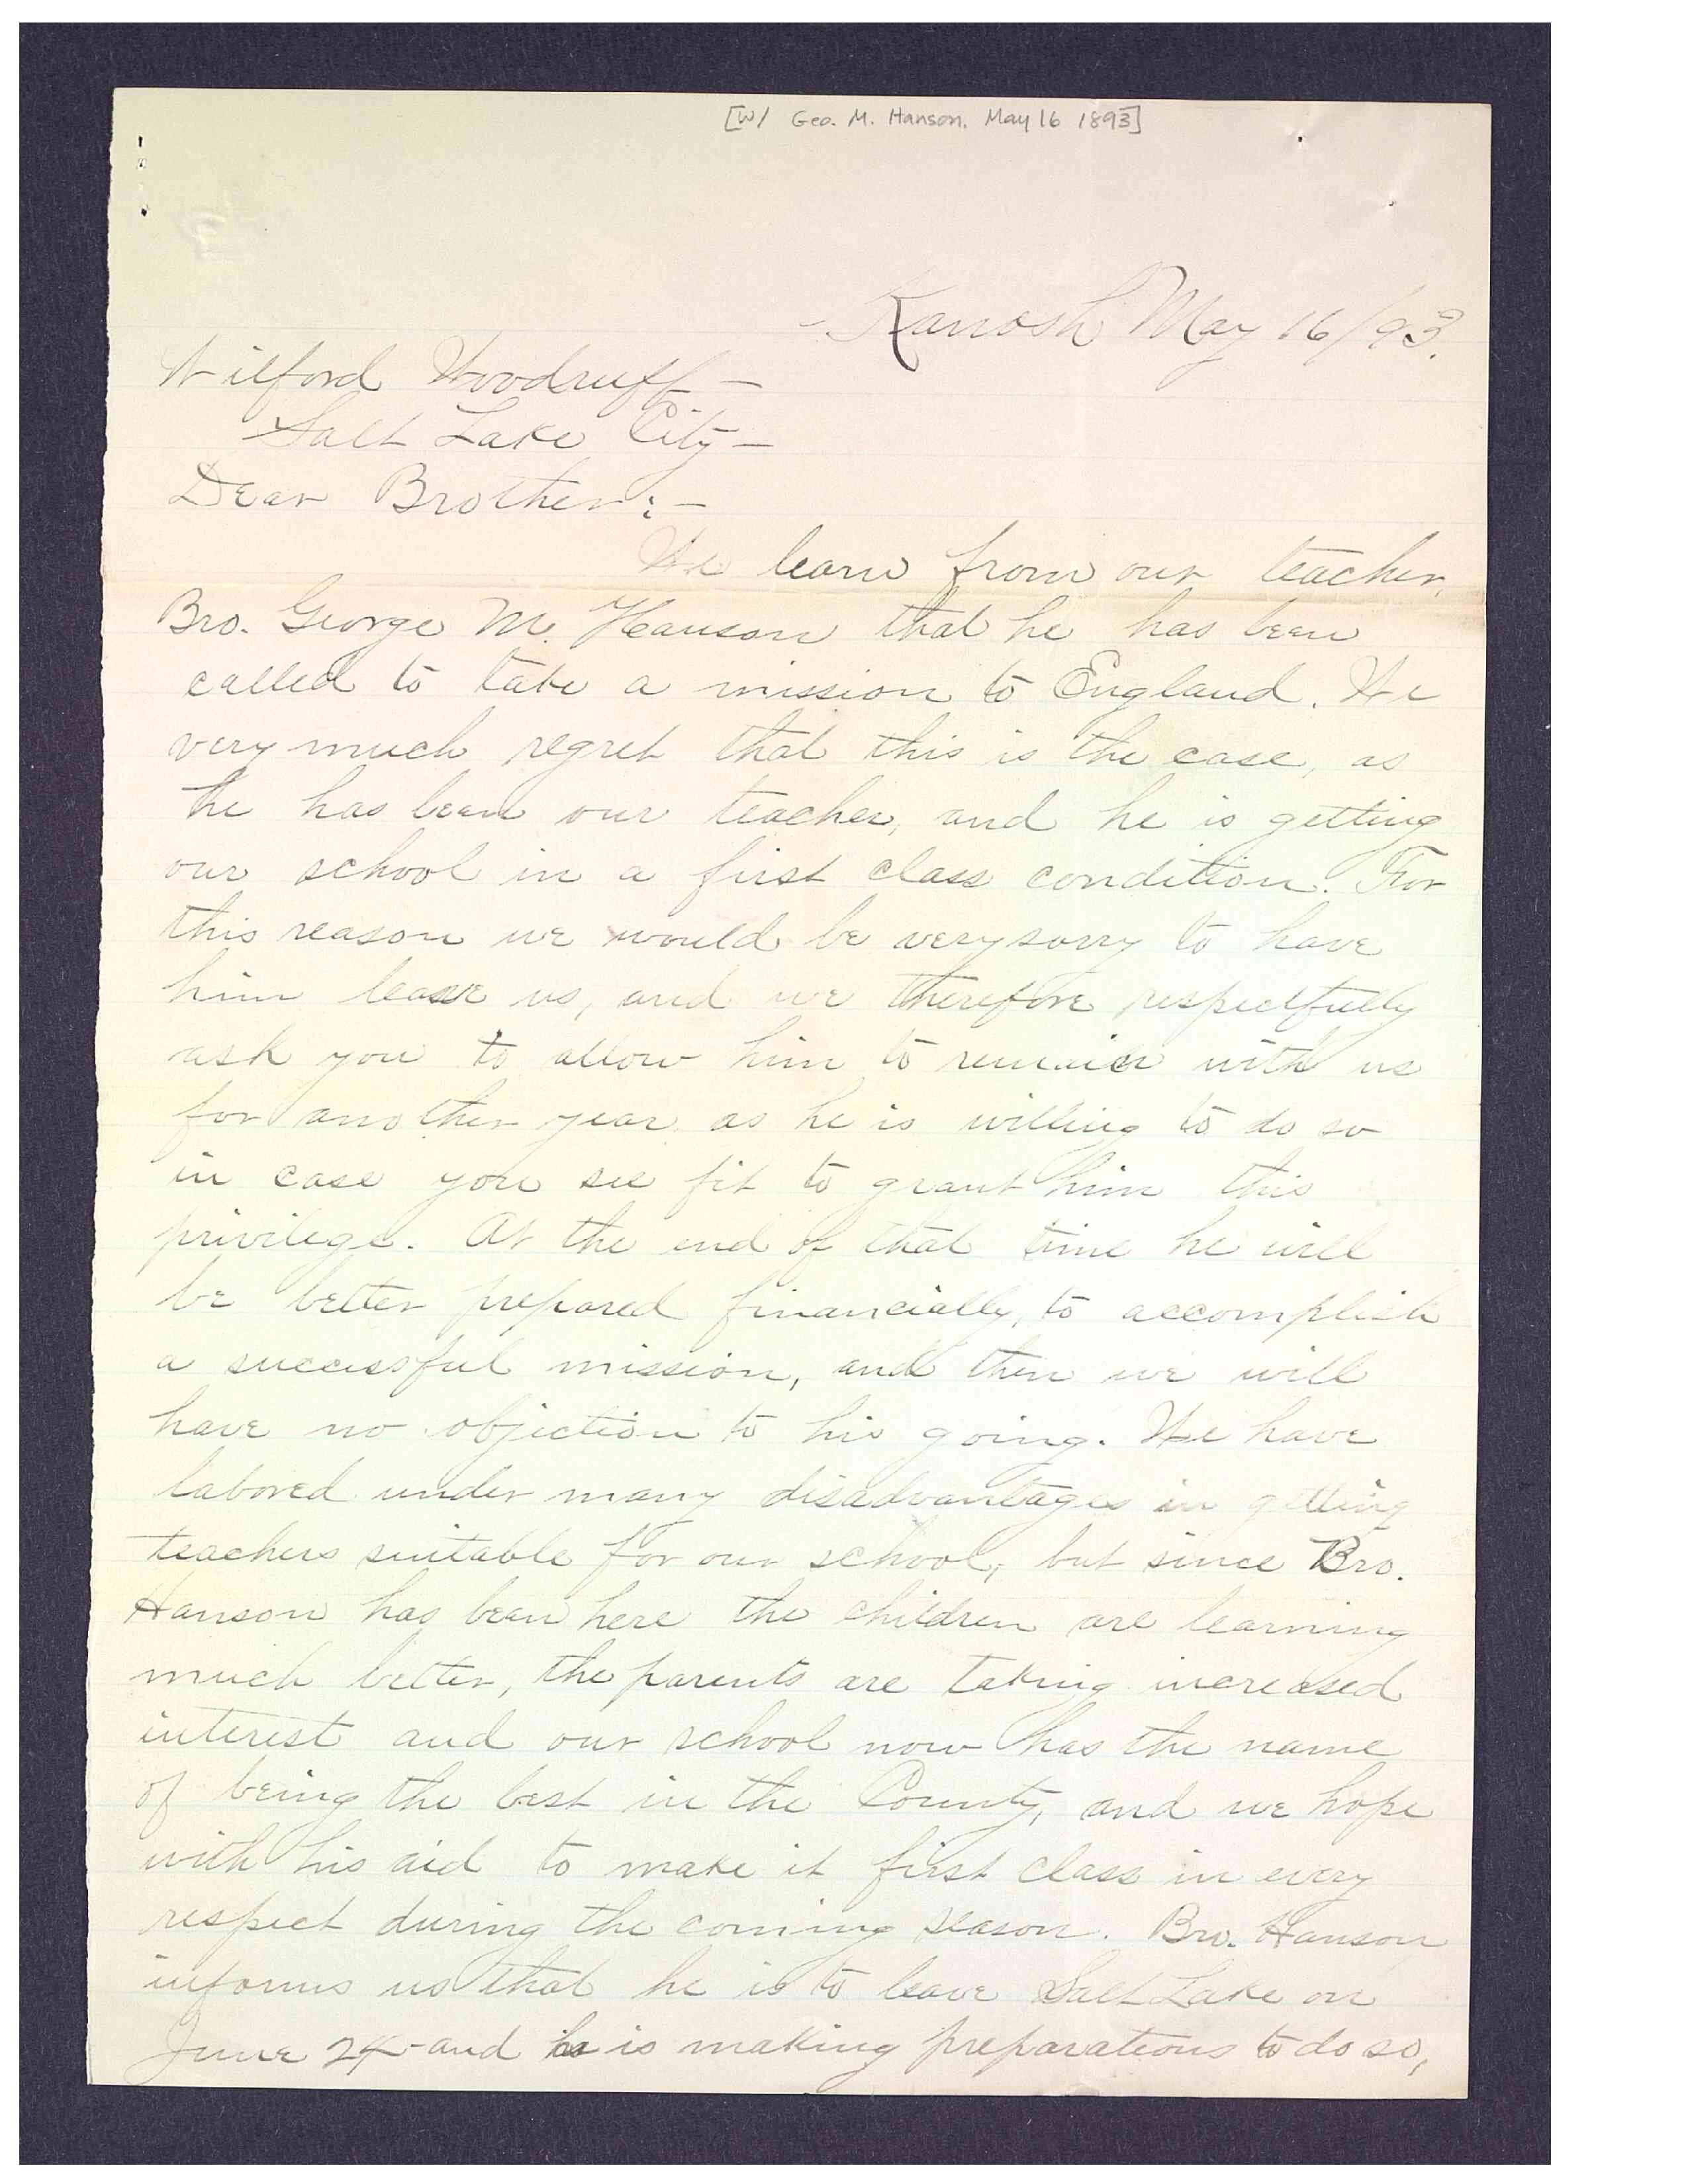 [W/ Geo. M. Hanson, May 16 1893]
Kanosh May 16/93.
Wilford Woodruff —
Salt Lake City —
Dear Brother:—
We learn from our teacher,
Bro. George M. Hanson that he has been
called to take a mission to England. We
very much regret that this is the case, as
he has been our teacher, and he is getting
our school in a first class condition. For
this reason we would be very sorry to have
him leave us, and we therefore respectfully
ask you to allow him to remain with us
for another year, as he is willing to do so
in case you see fit to grant him this
privilege. At the end of that time he will
be better prepared financially, to accomplish
a successful mission, and then we will
have no objection to his going. We have
labored under many disadvantages in getting
teachers suitable for our school, but since Bro.
Hanson has been here the children are learning
much better, the parents are taking increased
interest and our school now has the name
of being the best in the County, and we hope
with his aid to make it first class in every
respect during the coming season. Bro. Hanson
informs us that he is to leave Salt Lake on
June 24 and he is making preparations to do so,